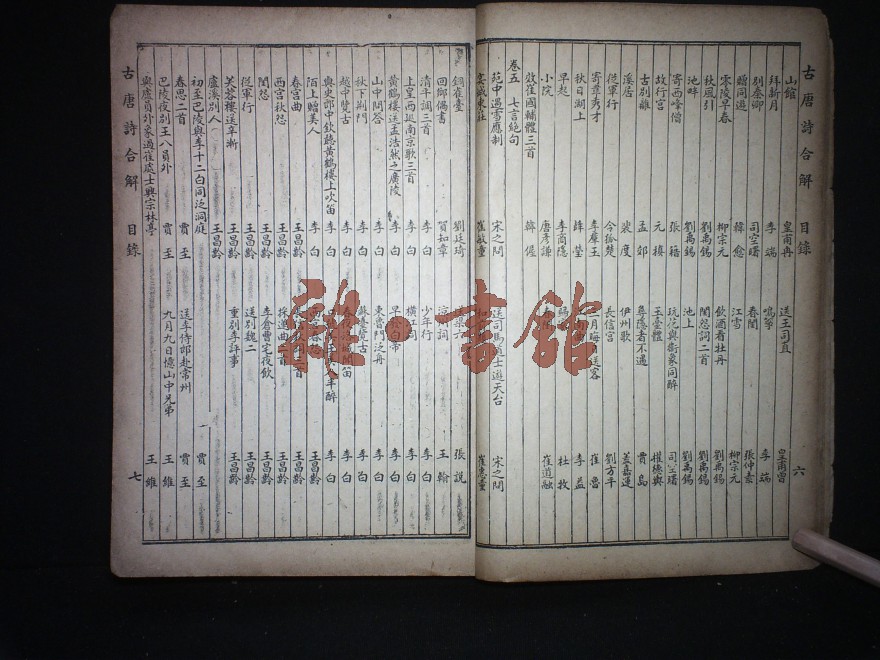 古唐詩合解 目錄 六
山館 皇甫冉 送王司直 皇甫曾
拜新月 李端 鳴箏 李端
別秦卿 司空曙 春閨 張仲素
贈同遊 韓愈 江雪 柳宗元
零陵早春 柳宗元 飲酒看牡丹 劉禹錫
秋風引 劉禹錫 閨怨詞二首 劉禹錫
池畔 劉禹錫 池上
寄西峰僧 張籍 玩花與衛象同醉 司空曙
故行宮 元稹 玉臺體 權德輿
古別離 孟郊 尋隱者不遇 賈島
溪居 裴度 伊州歌 蓋嘉運
從軍行 令狐楚 長信宮 劉方平
寄韋秀才 李羣玉 崔魯
秋日湖上 薛瑩 李益
早起 李商隱 杜牧
小院 唐彥謙 崔道融
效崔國輔體三首 韓偓
卷五 七言絕句
苑中遇雪應制 宋之問 送司馬道士遊天台 宋之問
宴城東莊 崔敏童 崔惠童
銅雀臺 劉廷琦 張說
回鄉偶書 賀知章 涼州詞 王翰
清平調三首 李白 少年行 李白
上皇西巡南京歌三首 李白 橫江詞 李白
黃鶴樓送孟浩然之廣陵 李白 早發白帝 李白
山中問答 李白 東魯門泛舟 李白
秋下荊門 李白 蘇臺覽古 李白
越中覽古 李白 李白
與史郎中欽聽黃鶴樓上吹笛 李白 李白
陌上贈美人 李白 王昌齡
春宮曲 王昌齡 王昌齡
西宮秋怨 王昌齡 採蓮曲 王昌齡
閨怨 王昌齡 李倉曹宅夜飲 王昌齡
從軍行 王昌齡 送別魏二 王昌齡
芙蓉樓送辛漸 王昌齡 重別李評事 王昌齡
盧溪別人 王昌齡
初至巴陵與李十二白同泛洞庭 賈至
春思二首 賈至 送李侍郎赴常州 賈至
巴陵夜別王八員外 賈至 九月九日憶山中兄弟 王維
與盧員外象過崔處士興宗林亭 王維
古唐詩合解 目錄 七
雒書館